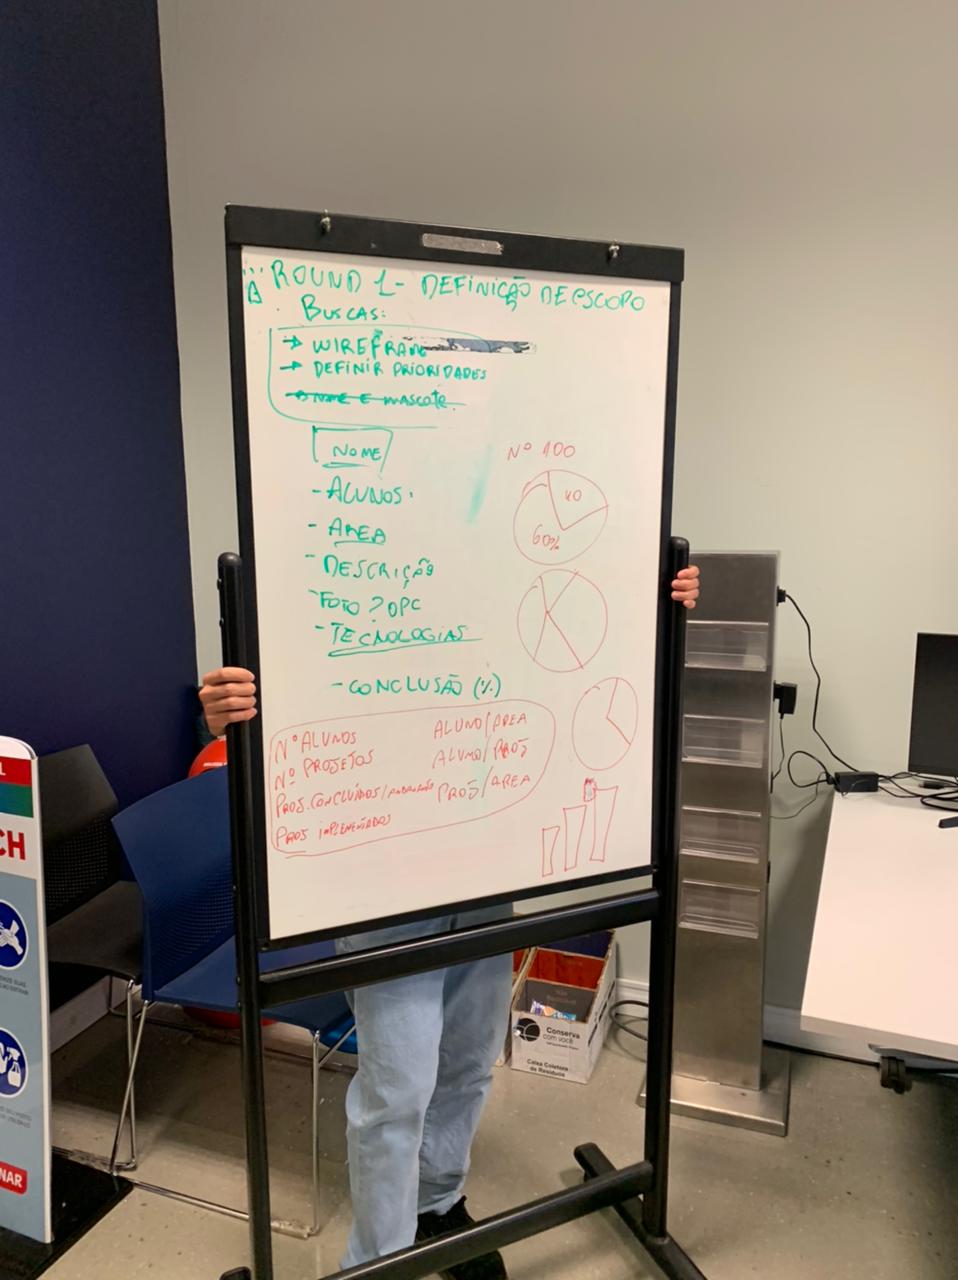 ROUND 1 - DEFINIÇÃO DE ESCOPO
BUSCAS:
→ WIREFRAME
→ DEFINIR PRIORIDADES
NOME E MASCOTE
NOME
- ALUNOS
- AREA
- DESCRIÇÃO
- FOTO? OPC
- TECNOLOGIAS
- CONCLUSÃO (%)
Nº 100
40
60%
Nº ALUNOS
Nº PROJETOS
PROJ. CONCLUÍDOS/ANDAMENTO
PROJ IMPLEMENTADOS
ALUNO/AREA
ALUNO/PROJ
PROJ/AREA
CH
NAR
Conserva
com você
Caixa Coletora
de Resíduos